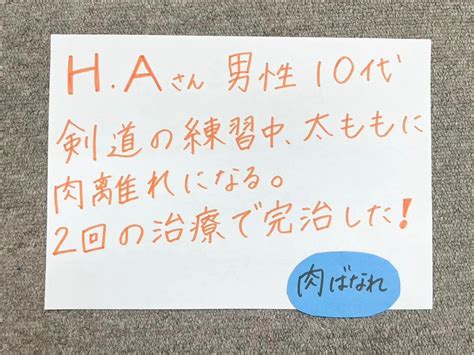 H.Aさん 男性 10代
剣道の練習中、太ももに
肉離れになる。
2回の治療で完治した!
肉ばなれ